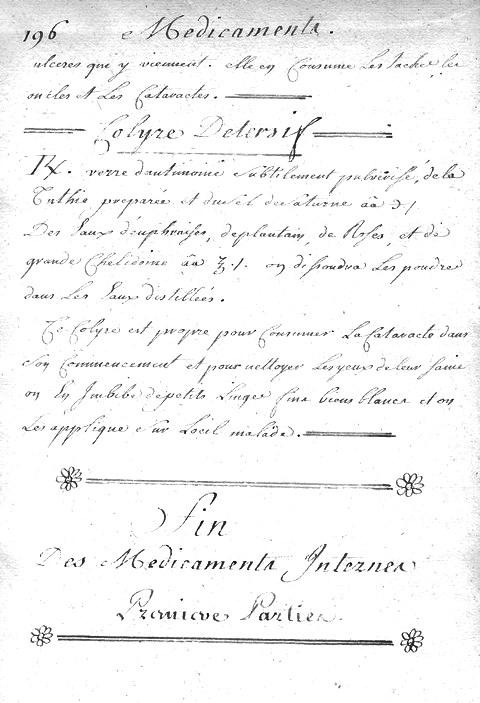 196 Medicaments.
ulceres qui y viennent. elle en Consume Les taches, les
oncles et Les Cataractes.
Colyre Detersif
℞. verre dantimoine subtilement pulverissé, de la
Tuthie preparée et du sel de saturne āā ℈ 1
Des Eaux deuphraises, de plantain, de Roses, et de
grande Chelidoine āā ℥ 1. on dissoudra Les poudre
dans Les Eaux distillées.
Ce Colyre est propre pour Consumer La Cataracte dans
son Commencement et pour nettoyer Les yeux de leur sanie
on En Imbibe de petits Linges fins bien blancs et on
Les applique sur Loeil malade.
Fin
Des Medicaments Internes
Premiere Partie.